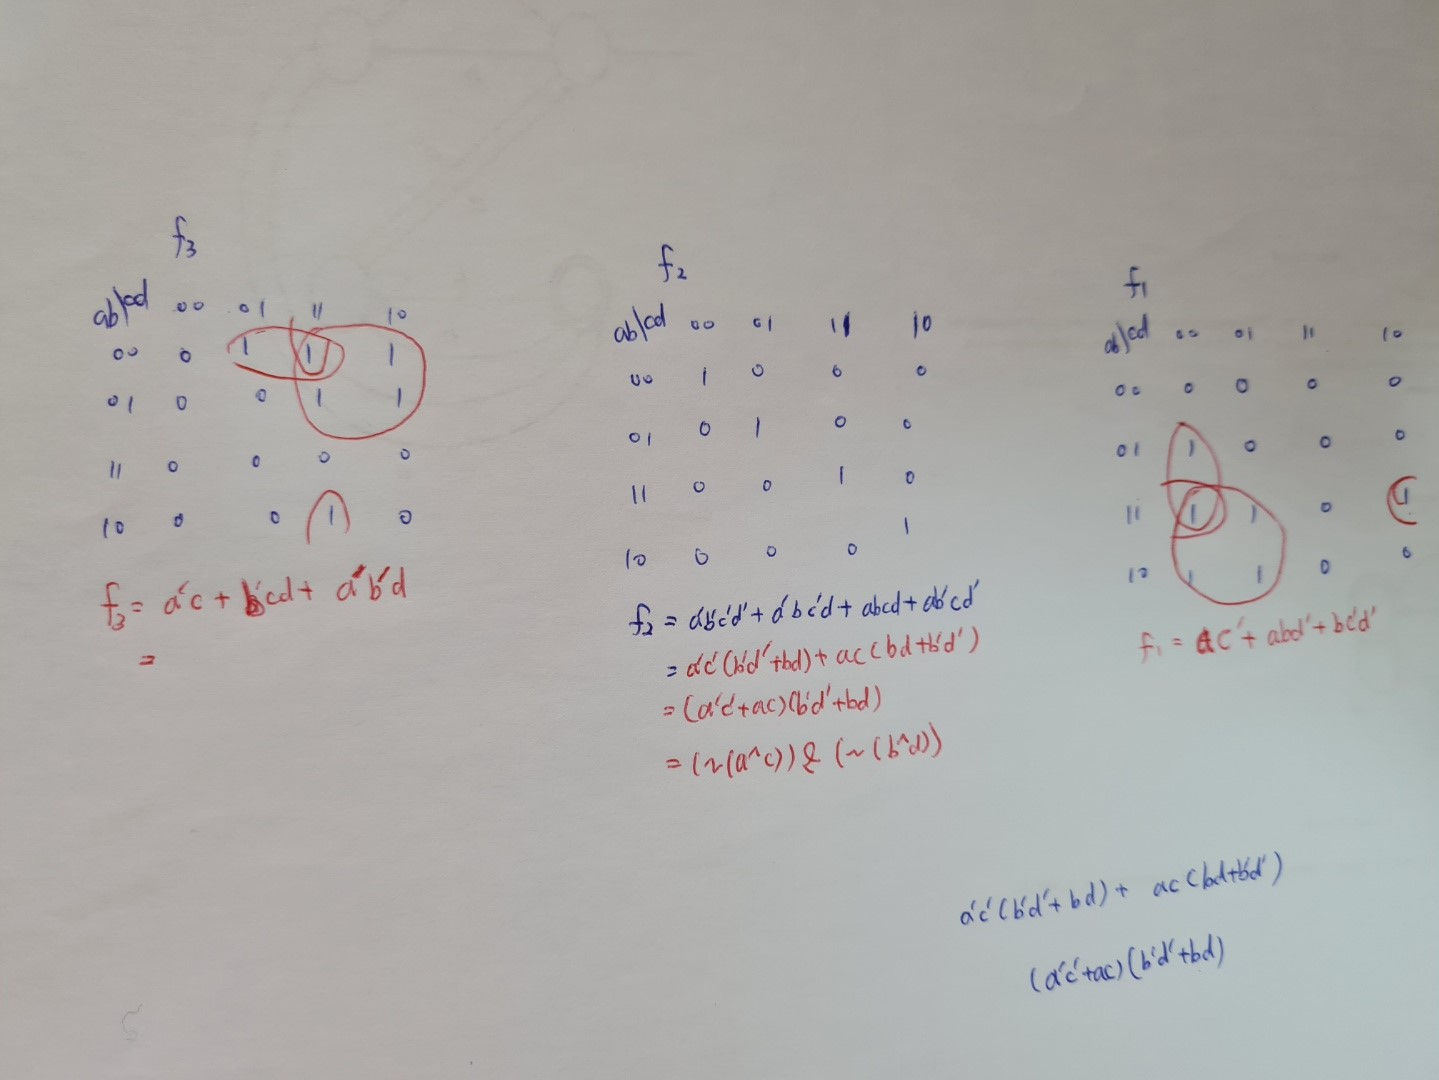 f₃
ab\cd 00 01 11 10
00 0 1 1 1
01 0 0 1 1
11 0 0 0 0
10 0 0 1 0
f₃ = a'c + b'cd + a'b'd
=
f₂
ab\cd 00 01 11 10
00 1 0 0 0
01 0 1 0 0
11 0 0 1 0
10 0 0 0 1
f₂ = a'b'c'd' + a'bc'd + abcd + ab'cd'
= a'c'(b'd'+bd) + ac(bd+b'd')
= (a'c'+ac)(b'd'+bd)
= (~(a^c)) & (~(b^d))
f₁
ab\cd 00 01 11 10
00 0 0 0 0
01 1 0 0 0
11 1 1 0 1
10 1 1 0 0
f₁ = ac' + abd' + bc'd'
a'c'(b'd'+bd) + ac(bd+b'd')
(a'c'+ac)(b'd'+bd)